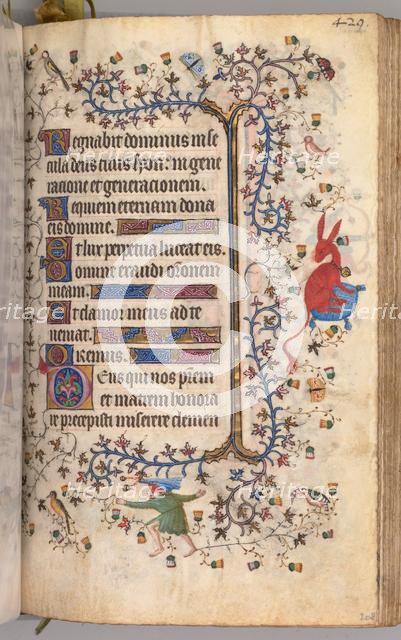 429.
Regnabit dominus in se
cula deus tuus syon: in gene
racione et generacionem.
Requiem eternam dona
eis domine.
Et lux perpetua luceat eis.
Domine exaudi oronem
meam.
Et clamor meus ad te
veniat.
Oremus.
Deus qui nos prem
et matrem honora
re precepisti miserere clemen
208